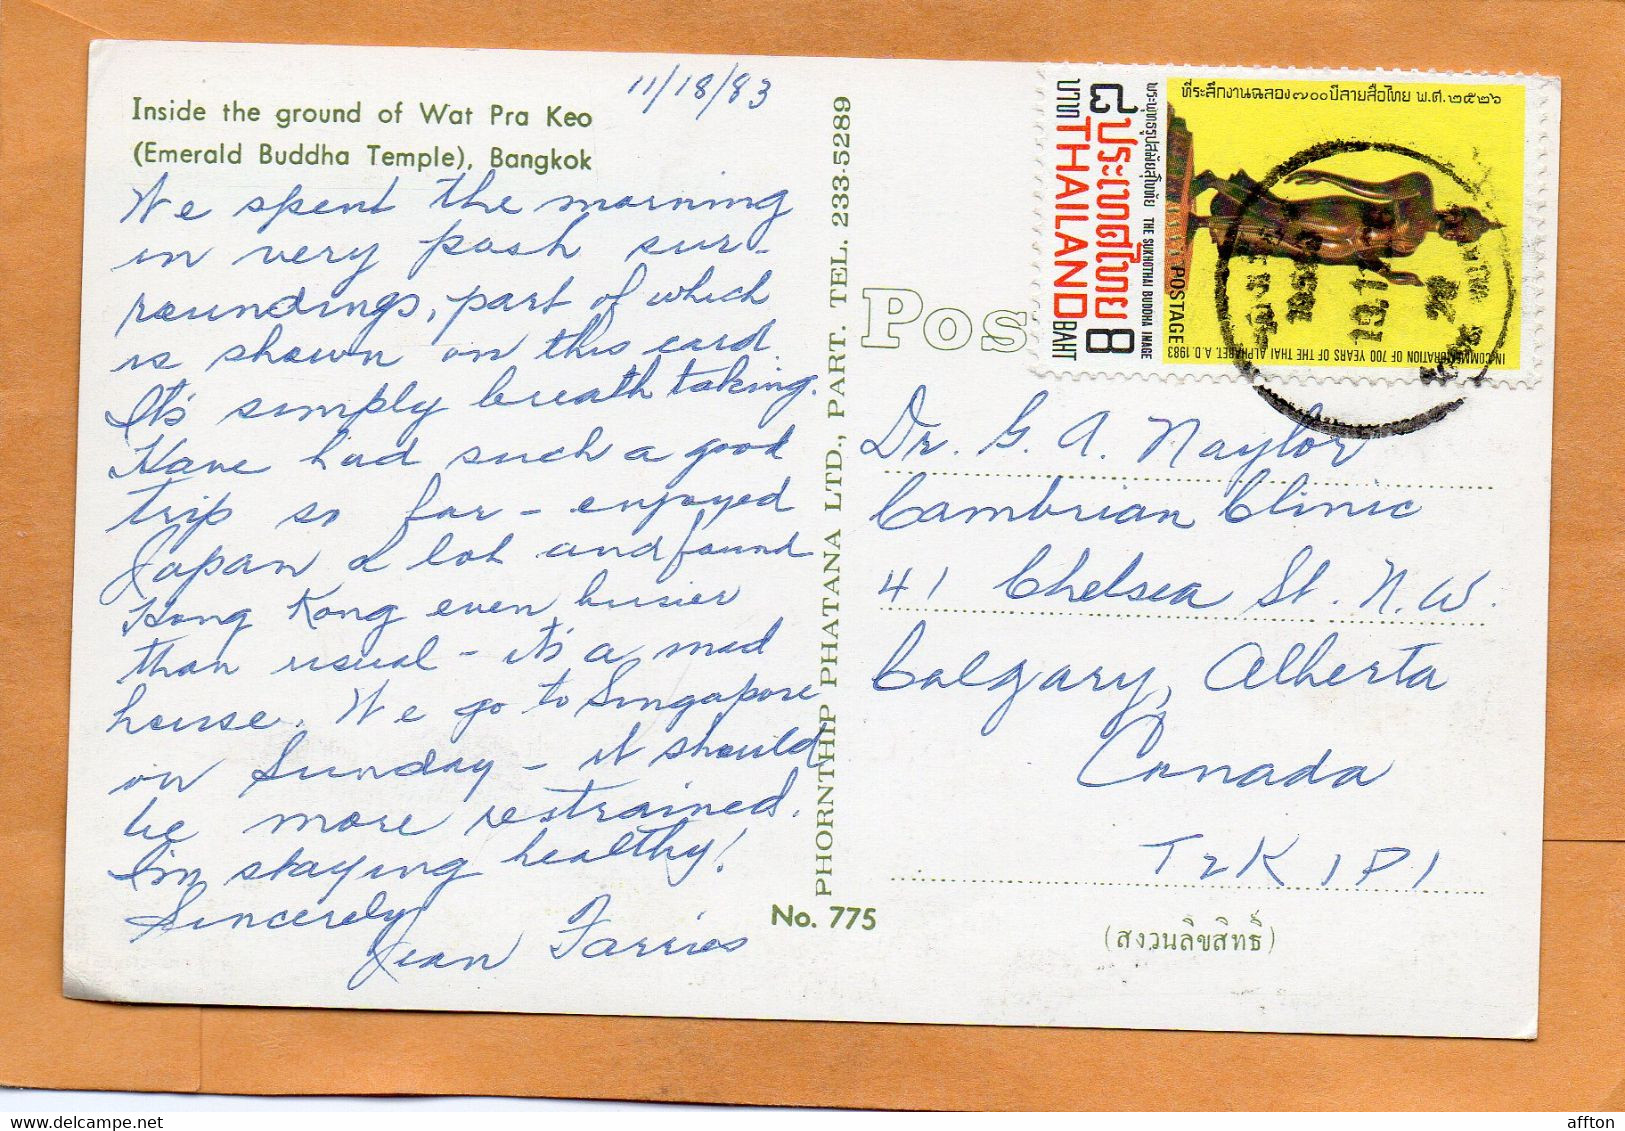 11/18/83
Inside the ground of Wat Pra Keo
(Emerald Buddha Temple), Bangkok
We spent the morning
in very posh sur-
roundings, part of which
is shown on this card.
It's simply breath taking.
Have had such a good
trip so far - enjoyed
Japan a lot and found
Hong Kong even busier
than usual - it's a mad
house. We go to Singapore
on Sunday - it should
be more restrained.
I'm staying healthy!
Sincerely
Jean Farries
PHORNTHIP PHATANA LTD., PART. TEL. 233-5289
No. 775
Pos
ที่ระลึกงานฉลอง๗๐๐ปีลายสือไทย พ.ศ.๒๕๒๖
พระพุทธรูปสมัยสุโขทัย THE SUKHOTHAI BUDDHA IMAGE
ประเทศไทย 8
๘ บาท THAILAND BAHT
POSTAGE
IN COMMEMORATION OF 700 YEARS OF THE THAI ALPHABET. A.D. 1983
Dr. G. A. Naylor
Cambrian Clinic
41 Chelsea St. N.W.
Calgary, Alberta
Canada
T2K 1P1
(สงวนลิขสิทธิ์)
affton